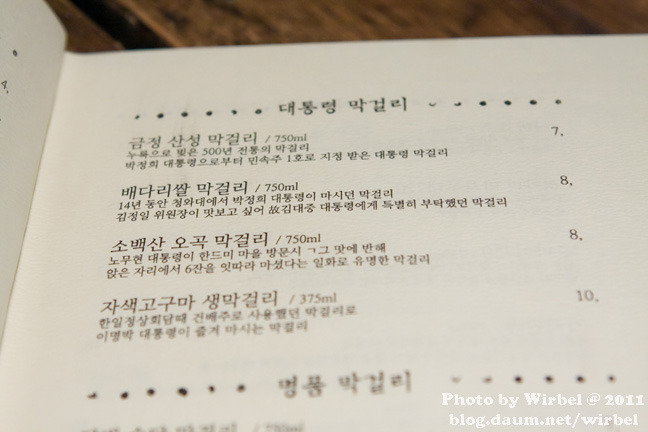 대통령 막걸리
금정 산성 막걸리 / 750ml 7,
누룩으로 빚은 500년 전통의 막걸리
박정희 대통령으로부터 민속주 1호로 지정 받은 대통령 막걸리
배다리쌀 막걸리 / 750ml 8,
14년 동안 청와대에서 박정희 대통령이 마시던 막걸리
김정일 위원장이 맛보고 싶어 故김대중 대통령에게 특별히 부탁했던 막걸리
소백산 오곡 막걸리 / 750ml 8,
노무현 대통령이 한드미 마을 방문시 ㄱ그 맛에 반해
앉은 자리에서 6잔을 잇따라 마셨다는 일화로 유명한 막걸리
자색고구마 생막걸리 / 375ml 10,
한일정상회담때 건배주로 사용했던 막걸리로
이명박 대통령이 즐겨 마시는 막걸리
명품 막걸리
막걸리
Photo by Wirbel @ 2011
blog.daum.net/wirbel